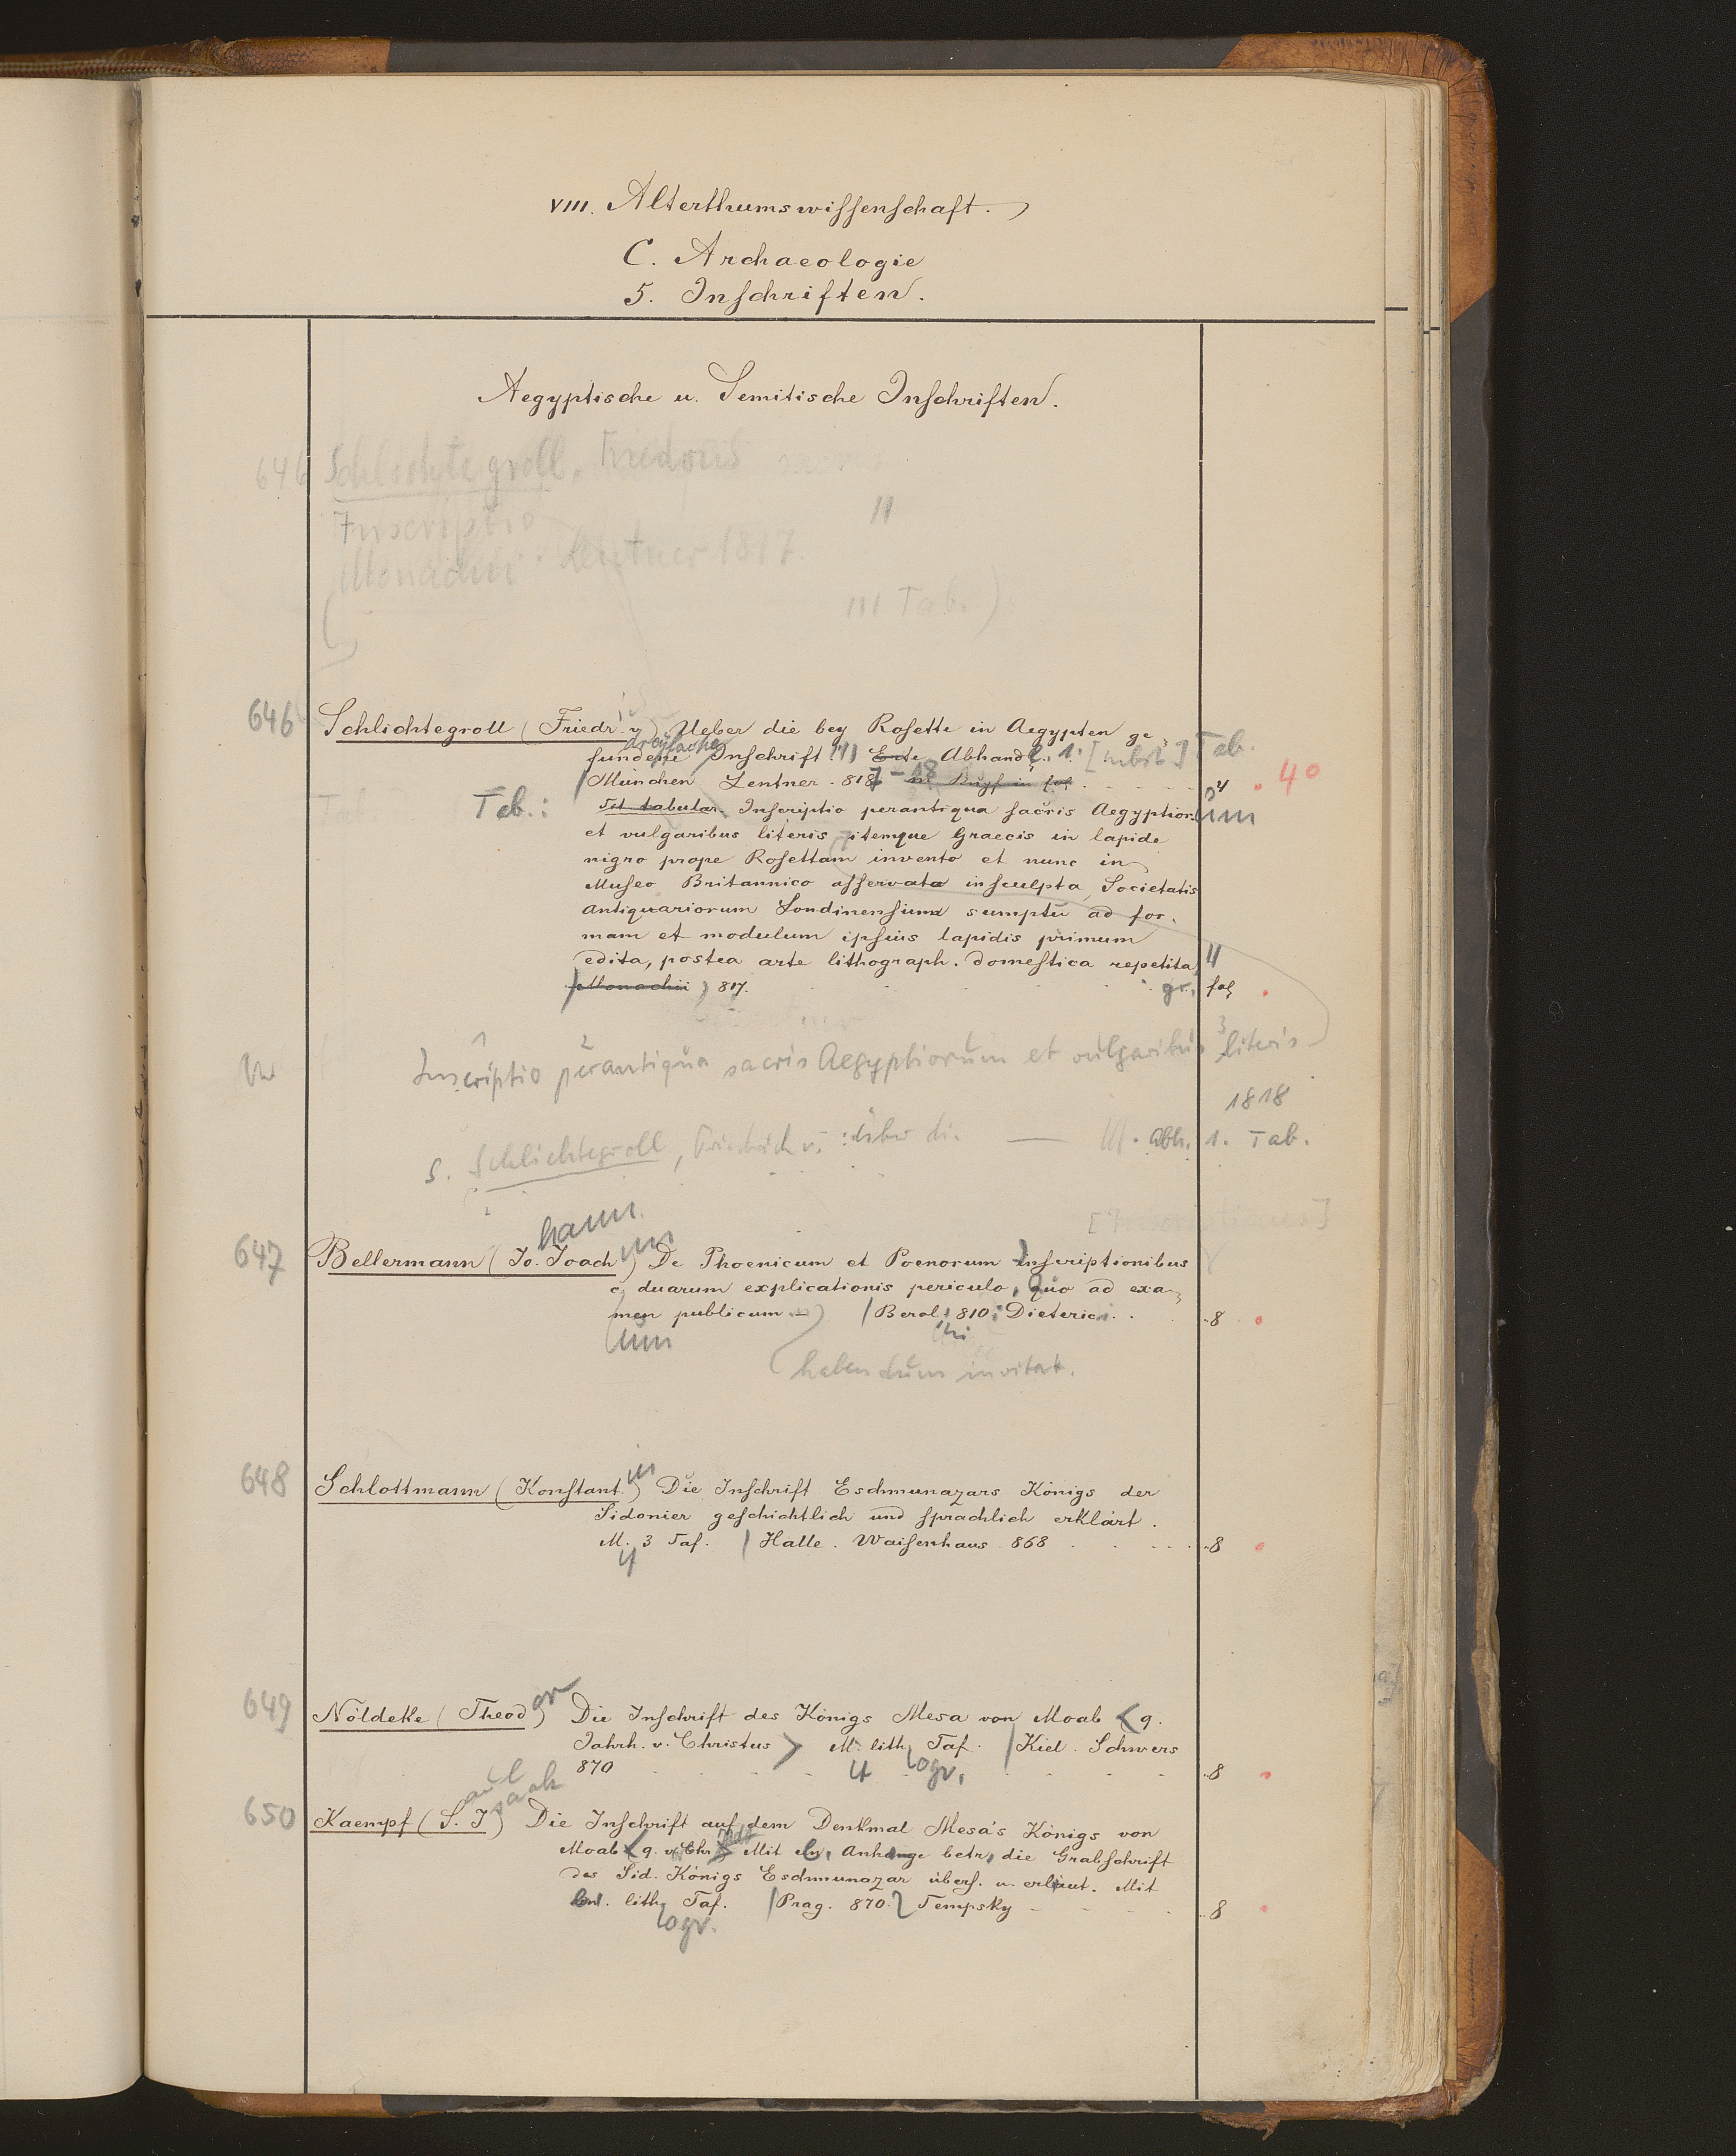 VIII. Alterthumswissenschaft.
C. Archaeologie
5. Inschriften.
Aegyptische u. Semitische Inschriften.
646 Schlichtegroll, sacris
Inscriptio "
Monachii Lentner 1817.
III Tab.)
646 Schlichtegroll (Friedr. v.) Ueber die bey Rosette in Aegypten ge-
fundene dreyfache Inschrift (!) Erste Abhandl. 1. [nebst] Tab.
München Lentner. 8187-18 4 4°
Tab.: Tit. tabular. Inscriptio perantiqua sacris Aegyptior. um
et vulgaribus literis itemque Graecis in lapide
nigro prope Rosettam invento et nunc in
Museo Britannico asservata insculpta, Societatis
Antiquariorum Londinensium sumptu ad for-
mam et modulum ipsius lapidis primum
edita, postea arte lithograph. domestica repetita
Monachii 817. gr. fol
Inscriptio perantiqua sacris Aegyptiorum et vulgaribus literis
1 2 3
1818
s. Schlichtegroll, Friedrich v. : über di. — III. Abh. 1. Tab.
647 Bellermann (Jo. hann. Joach im) De Phoenicum et Poenorum Inscriptionibus
c. duarum explicationis periculo, quo ad exa-
men publicum (Berol. 810. Dieterici. 8
um habendum invitat.
648 Schlottmann (Konstant in) Die Inschrift Eschmunazars Königs der
Sidonier geschichtlich und sprachlich erklärt.
M. 3 Taf. | Halle. Waisenhaus 868 8
649 Nöldeke (Theod or) Die Inschrift des Königs Mesa von Moab <9.
Jahrh. v. Christus> M. lith. Taf. | Kiel. Schwers
870 ogr. 8
650 Kaempf (S. aul I saak) Die Inschrift auf dem Denkmal Mesa's Königs von
Moab <9. v. Chr.> Mit e. Anhange betr. die Grabschrift
des Sid. Königs Eschmunazar übers. u. erläut. Mit
lith. Taf. | Prag. 870. Tempsky 8
ogr.